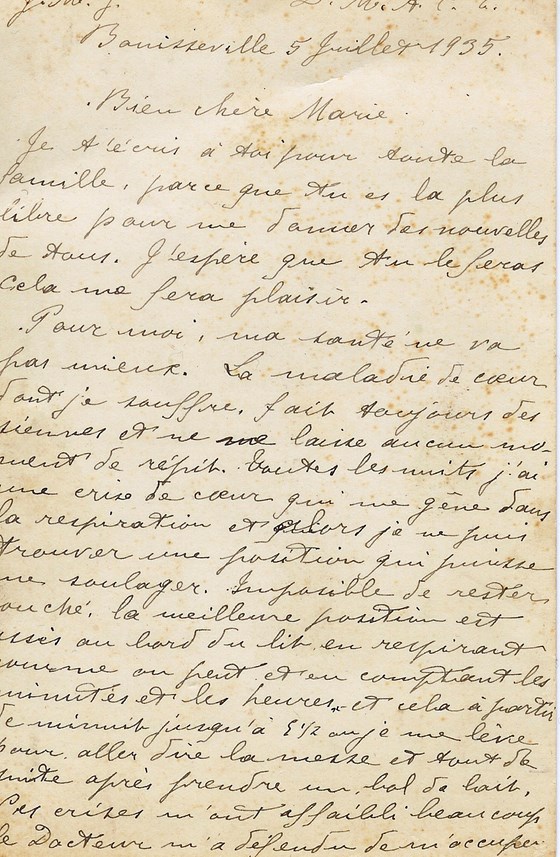 J. M. J.
Bouisseville 5 Juillet 1935.
Bien chère Marie
Je t'écris à toi pour toute la
famille, parce que tu es la plus
libre pour me donner des nouvelles
de tous. J'espère que tu le feras
Cela me fera plaisir.
Pour moi, ma santé ne va
pas mieux. La maladie de cœur
dont je souffre, fait toujours des
siennes et ne me laisse aucun mo-
ment de répit. Toutes les nuits j'ai
une crise de cœur qui me gêne dans
la respiration et alors je ne puis
trouver une position qui puisse
me soulager. Imposible de rester
couché, la meilleure position est
assis au bord du lit en respirant
comme on peut et en comptant les
minutes et les heures, et cela à partir
de minuit jusqu'à 5 1/2 ou je me lève
pour aller dire la messe et tout de
suite après prendre un bol de lait.
Ces crises m'ont affaibli beaucoup
le Docteur m'a défendu de m'occuper